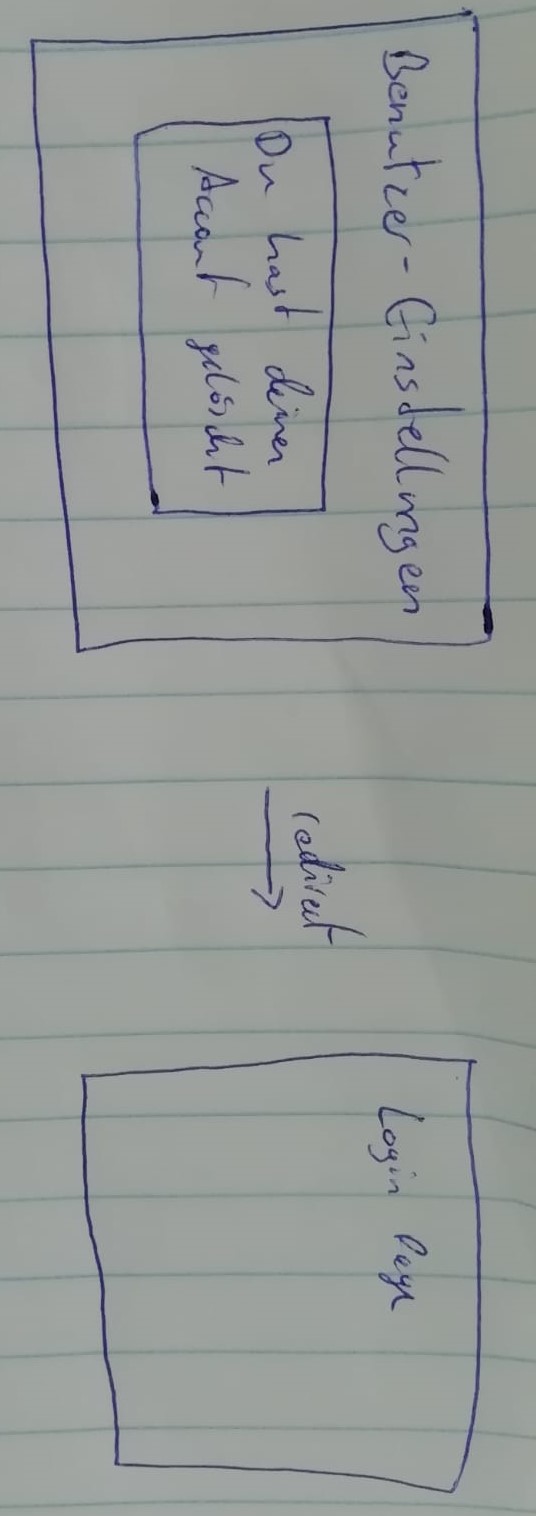 Benutzer-Einstellungen
Du hast deinen
Account gelöscht
redirect
Login Page